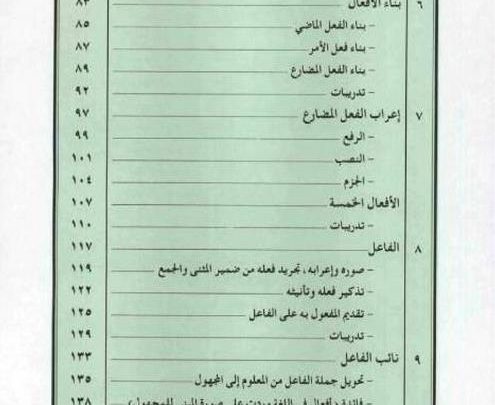 ٦ بناء الأفعال ٨٢
- بناء الفعل الماضي ٨٥
- بناء فعل الأمر ٨٧
- بناء الفعل المضارع ٨٩
- تدريبات ٩٢
٧ إعراب الفعل المضارع ٩٧
- الرفع ٩٩
- النصب ١٠١
- الجزم ١٠٤
الأفعال الخمسة ١٠٧
- تدريبات ١١٠
٨ الفاعل ١١٧
- صوره وإعرابه، تجريد فعله من ضمير المثنى والجمع ١١٩
- تذكير فعله وتأنيثه ١٢٢
- تقديم المفعول به على الفاعل ١٢٥
- تدريبات ١٢٩
٩ نائب الفاعل ١٣٣
- تحويل جملة الفاعل من المعلوم إلى المجهول ١٣٥
- فائدة (أفعال في اللغة وردت على صورة المبني للمجهول) ١٣٨